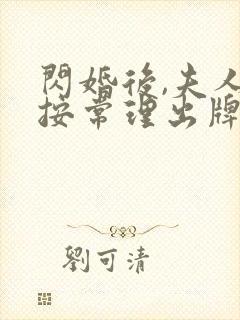 閃婚後,夫人
按常理出牌
劉可清